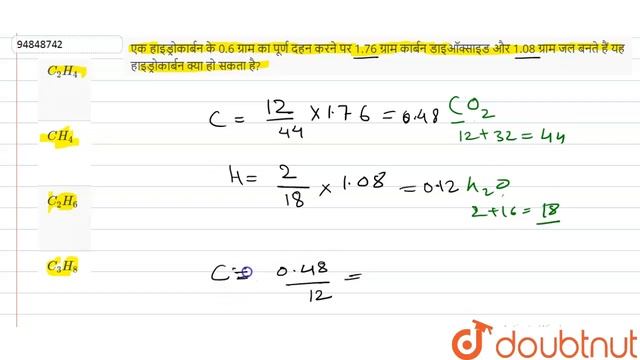 94848742
एक हाइड्रोकार्बन के 0.6 ग्राम का पूर्ण दहन करने पर 1.76 ग्राम कार्बन डाइऑक्साइड और 1.08 ग्राम जल बनते हैं यह
हाइड्रोकार्बन क्या हो सकता है?
C₂H₄
CH₄
C₂H₆
C₃H₈
C = 12/44 × 1.76 = 0.48
CO₂
12 + 32 = 44
H = 2/18 × 1.08 = 0.12
H₂O
2 + 16 = 18
C = 0.48/12 =
doubtnut